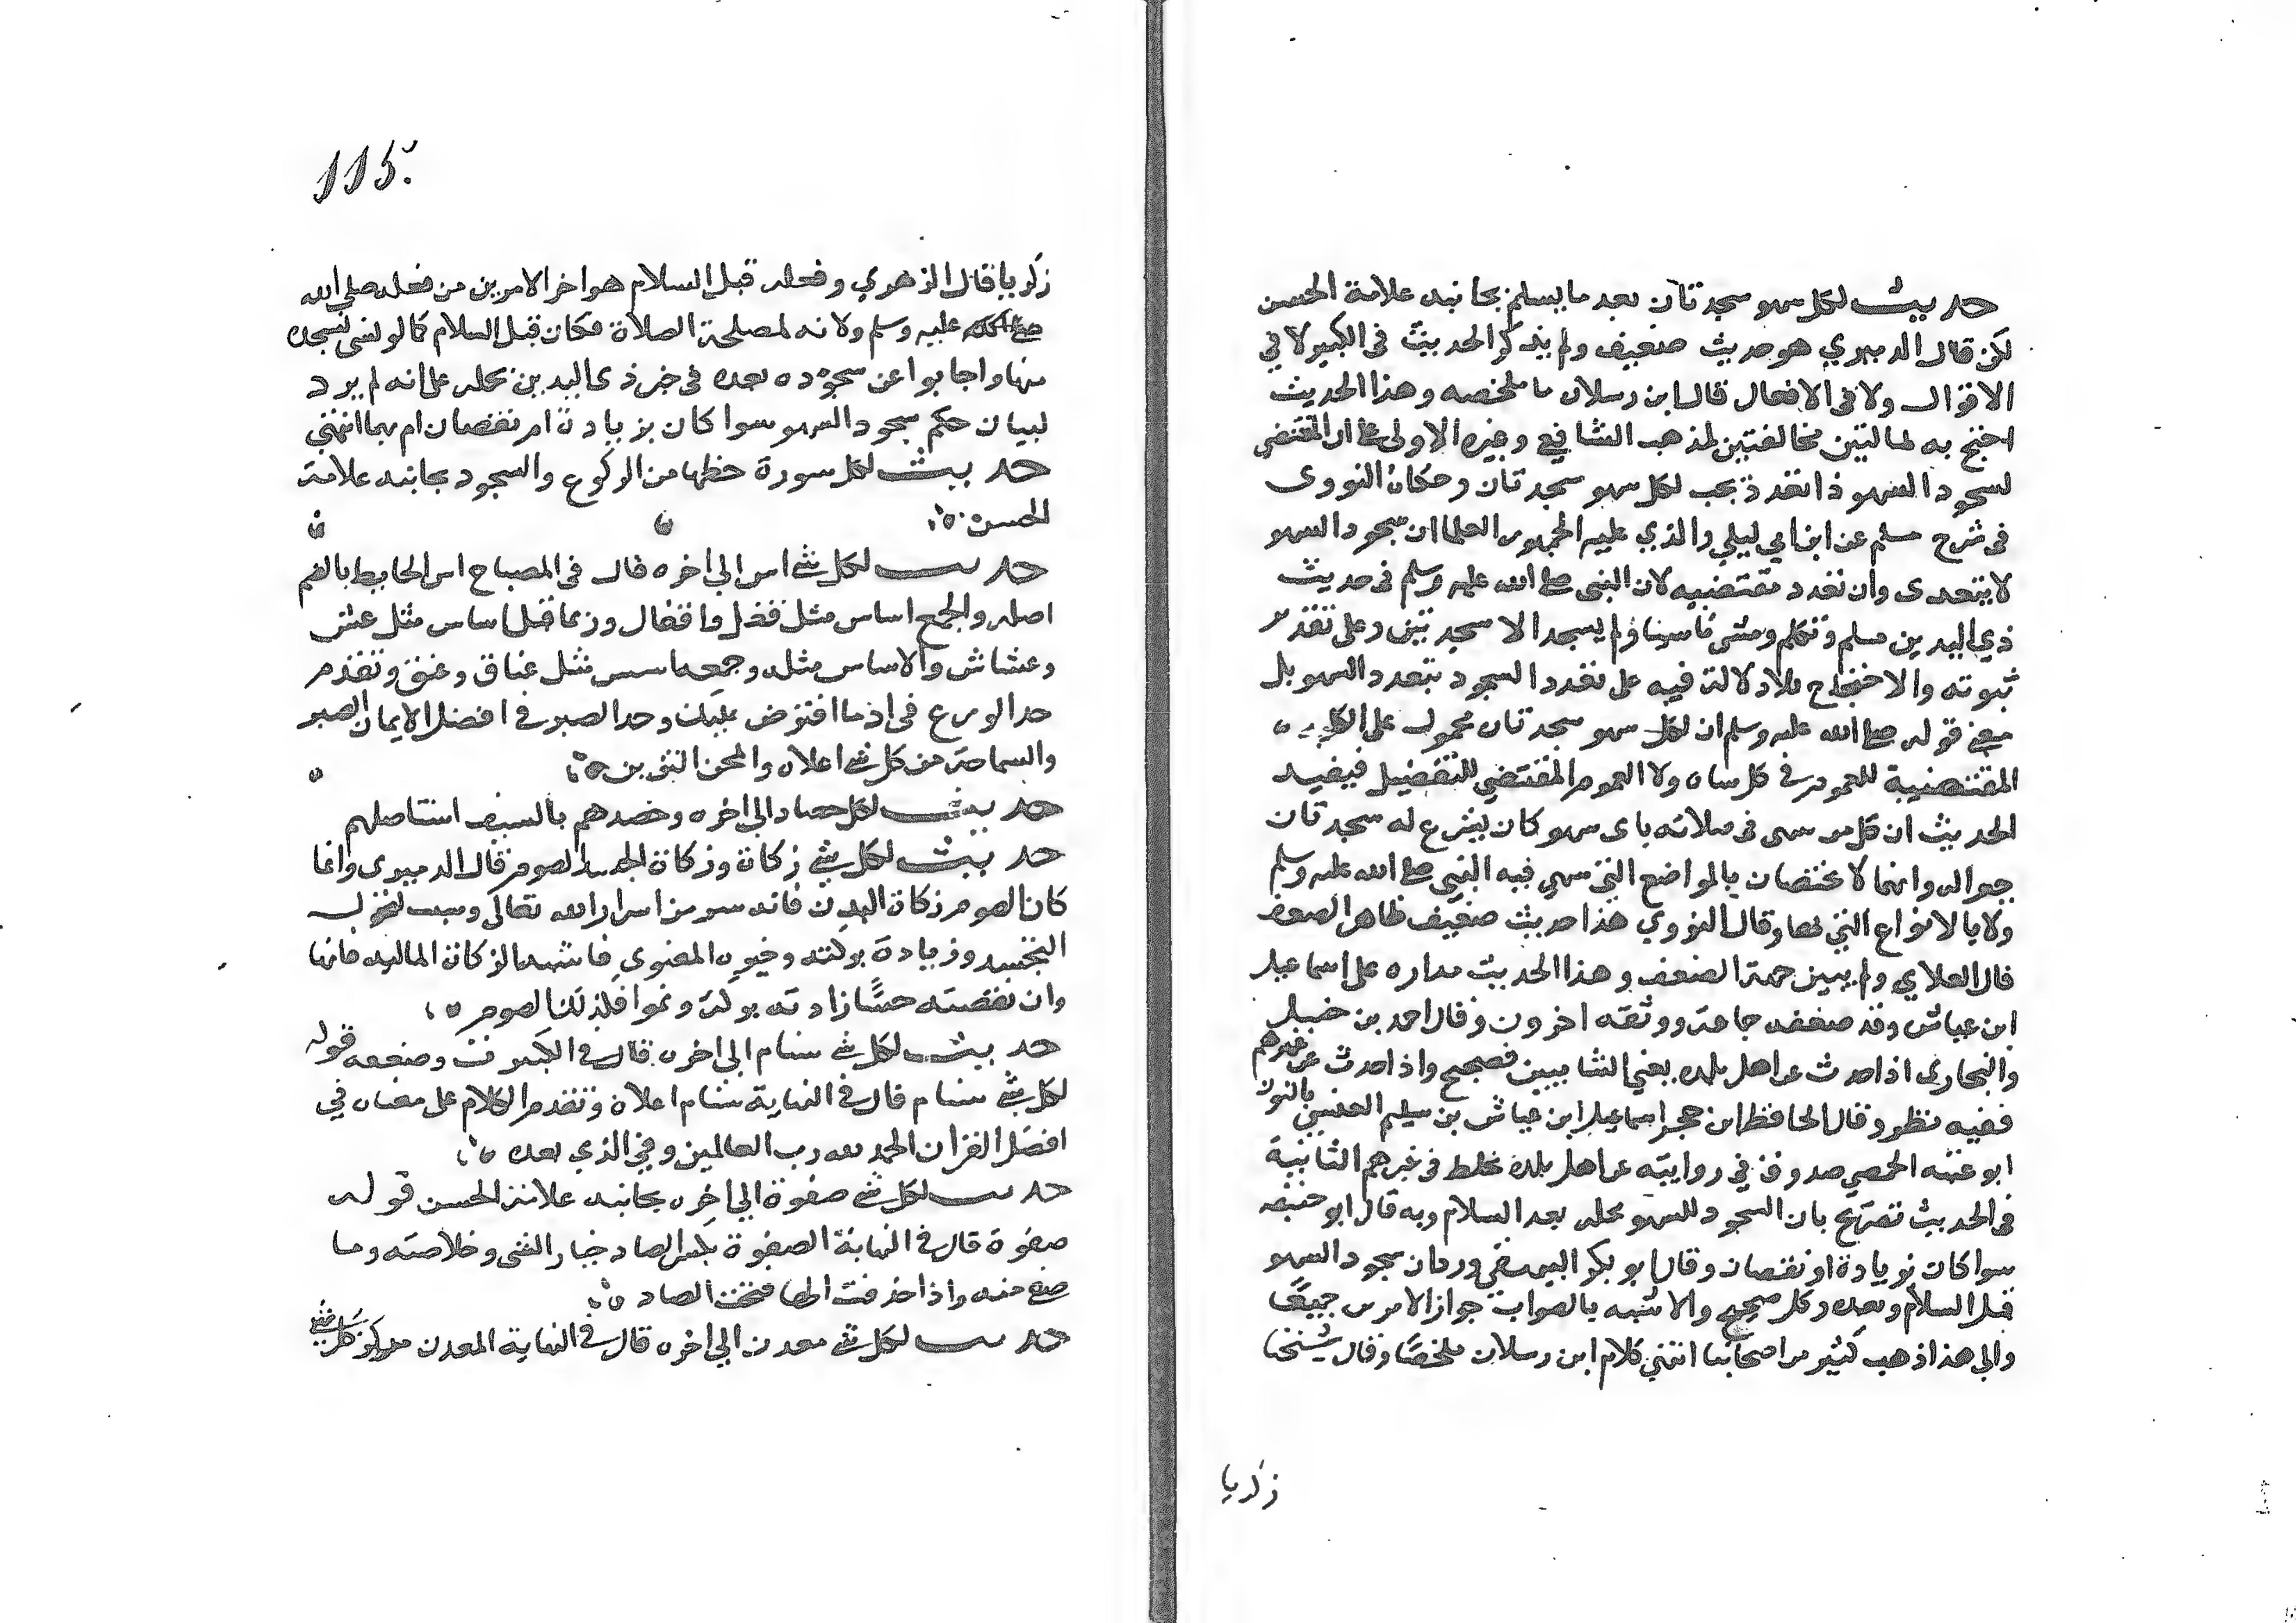 حديث لكل سهو سجدتان بعد ما يسلم بجانبه علامة الحسن
لكن قال الدميري هو حديث ضعيف ولم يذكر الحديث في الكبير لا في
الاقوال ولا في الافعال قال ابن رسلان ما ملخصه وهذا الحديث
احتج به لمالتين مخالفتين لمذهب الشافعي وغيره الاولى علي ان المقتضي
لسجود السهو اذا تعدد يجب لكل سهو سجدتان وحكاه النووى
فى شرح مسلم عن ابن ابي ليلي والذي عليه الجمهور العلما ان سجود السهو
لا يتعدى وان تعدد مقتضيه لان النبى صلي الله عليه وسلم فى حديث
ذي اليدين سلم وتكلم ومشى ناسيا ولم يسجد الا سجدتين وعلى تقدير
ثبوته والاحتجاج به لا دلالة فيه على تعدد السجود بتعدد السهو بل
معنى قوله صلي الله عليه وسلم ان لكل سهو سجدتان محمول على الكلية
المقتضية للعموم في كل ساه ولا العموم المقتضي للتفضيل فيفيد
الحديث ان كل من سهى فى صلاته باى سهو كان يشرع له سجدتان
جبرا له وانهما لا يختصان بالمواضع التي سهى فيه النبى صلي الله عليه وسلم
ولا بالانواع التي سها وقال النووي هذا حديث ضعيف ظاهر الضعف
قال العلاي ولم يبين جهة الضعف وهذا الحديث مداره على اسماعيل
ابن عياش وقد ضعفه جماعة ووثقه اخرون وقال احمد بن حنبل
والبخارى اذا حدث عن اهل بلده يعني الشاميين فصحيح واذا حدث عن غيرهم
ففيه نظر وقال الحافظ ابن حجر اسماعيل ابن عياش بن سليم العنسي بالنون
ابو عتبه الحمصي صدوق في روايته عن اهل بلده مخلط فى غيرهم الثانية
فى الحديث تصريح بان السجود للسهو محله بعد السلام وبه قال ابو حنيفه
سوا كان بزيادة او نقصان وقال ابو بكر البيهقي وردان سجود السهو
قبل السلام وبعده وكل صحيح والاشبه بالصواب جواز الامرين جميعًا
والى هذا ذهب كثير من اصحابنا انتهي كلام ابن رسلان ملخصًا وقال شيخنا
زكريا
115
زكريا قال الزهري وفعله قبل السلام هو اخر الامرين من فعله صلى الله
عليه وسلم ولانه لمصلحة الصلاة فكان قبل السلام كما لو نسى سجدة
منها واجابوا عن سجوده بعده فى خبر ذى اليدين بحمله على انه لم يرد
لبيان حكم سجود السهو سوا كان بزيادة ام نقصان ام بهما انتهي
حديث لكل سورة حظها من الركوع والسجود بجانبه علامة
الحسن
حديث لكل شي اس الى اخره قال فى المصباح اس الحايط بالضم
اصله والجمع اساس مثل قفل واقفال وربما قيل اساس مثل عش
وعشاش والاساس مثله وجمعه اسس مثل عناق وعنق وتقدم
حد الورع فى اد ما افترض عليك وحد الصبر في افضل الايمان الصبر
والسماحة من كل شي اعلاه والمحن
حديث لكل حصاد الى اخره وحصدهم بالسيف استاصلهم
حديث لكل شي زكاة وزكاة الجسد الصوم قال الدميرى وانما
كان الصوم زكاة البدن فانه سر من اسرار الله تعالى وسبب لنحول
الجسد وزيادة بركته وخيره المعنوي فاشبه الزكاة الماليه فانها
وان نقصته حسًّا زادته بركة ونموا فلذلك الصوم
حديث لكل شي سنام الى اخره قال في الكبير ت وضعفه قوله
لكل شي سنام قال في النهاية سنام اعلاه وتقدم الكلام على معناه في
افضل القران الحمد لله رب العالمين وفي الذي بعده
حديث لكل شي صفوة الي اخره بجانبه علامة الحسن قوله
صفوة قال في النهاية الصفوة بكسر الصاد خيار الشى وخلاصته وما
صفي منه واذا حذفت الها فتحت الصاد
حديث لكل شي معدن الي اخره قال في النهاية المعدن مركز كل شي